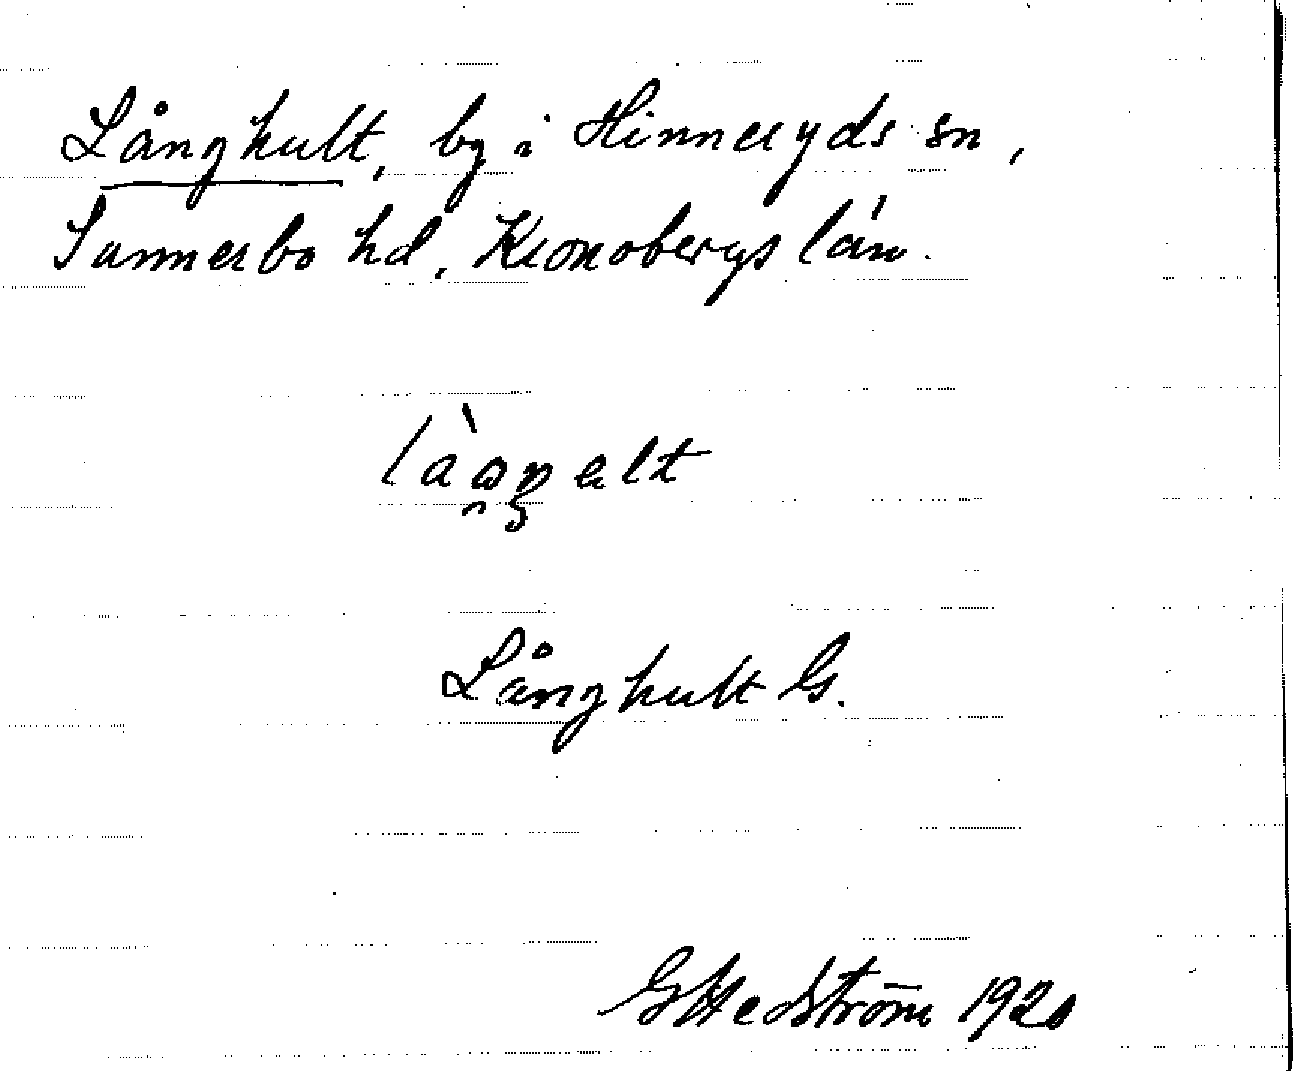 Långhult, by i Hinneryds sn,
Sunnerbo hd, Kronobergs län.
Långhult G.
GHedström 1920